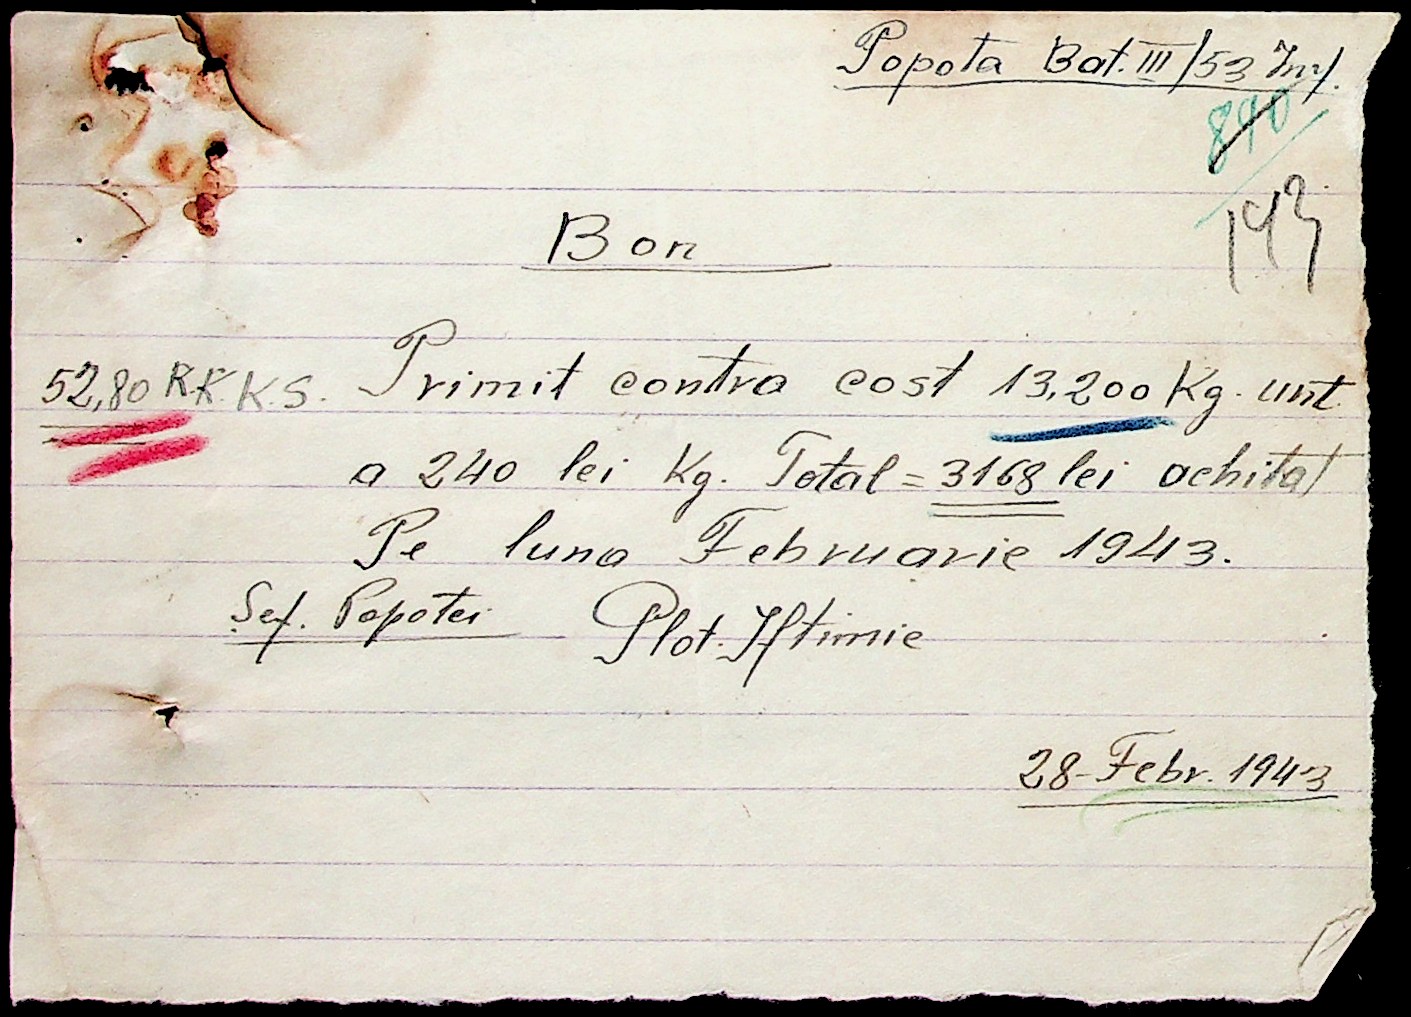 Popota Bat. III/53 Inf.
890
143
Bon
52,80 RK.K.S. Primit contra cost 13,200 Kg. unt
a 240 lei Kg. Total = 3168 lei achitat
Pe luna Februarie 1943.
Sef. Popotei Plot. Iftimie
28-Febr. 1943